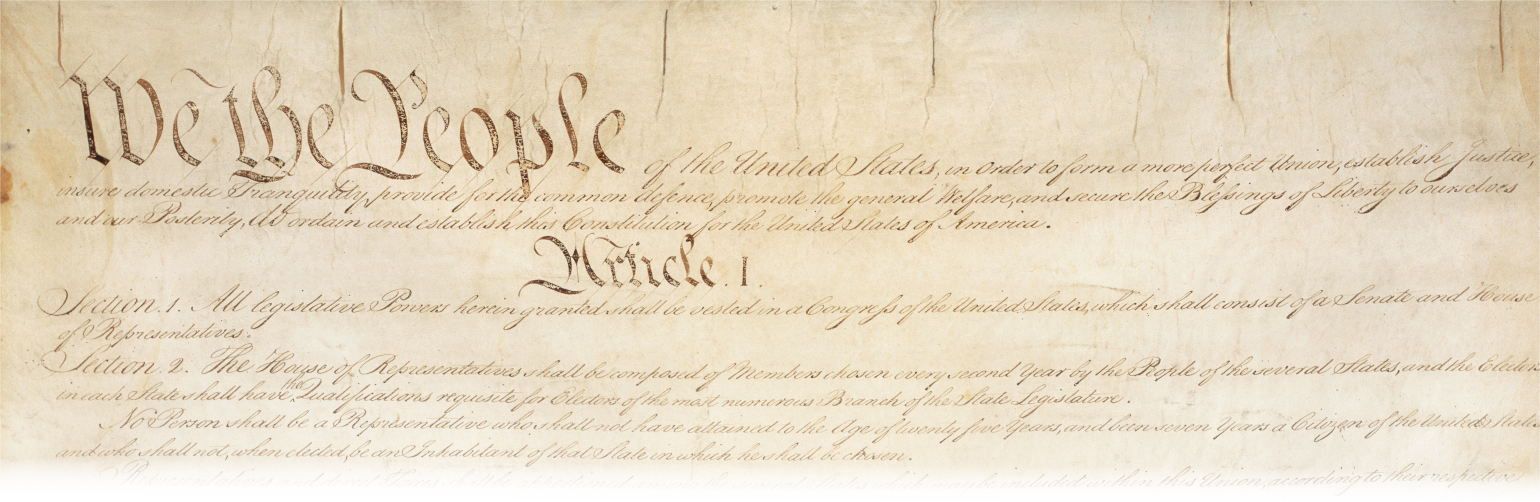 We the People of the United States, in Order to form a more perfect Union, establish Justice,
insure domestic Tranquility, provide for the common defence, promote the general Welfare, and secure the Blessings of Liberty to ourselves
and our Posterity, do ordain and establish this Constitution for the United States of America.
Article. I.
Section. 1. All legislative Powers herein granted shall be vested in a Congress of the United States, which shall consist of a Senate and House
of Representatives.
Section. 2. The House of Representatives shall be composed of Members chosen every second Year by the People of the several States, and the Electors
in each State shall have the Qualifications requisite for Electors of the most numerous Branch of the State Legislature.
No Person shall be a Representative who shall not have attained to the Age of twenty five Years, and been seven Years a Citizen of the United States,
and who shall not, when elected, be an Inhabitant of that State in which he shall be chosen.
Representatives and direct Taxes be included within this Union, according to their respective